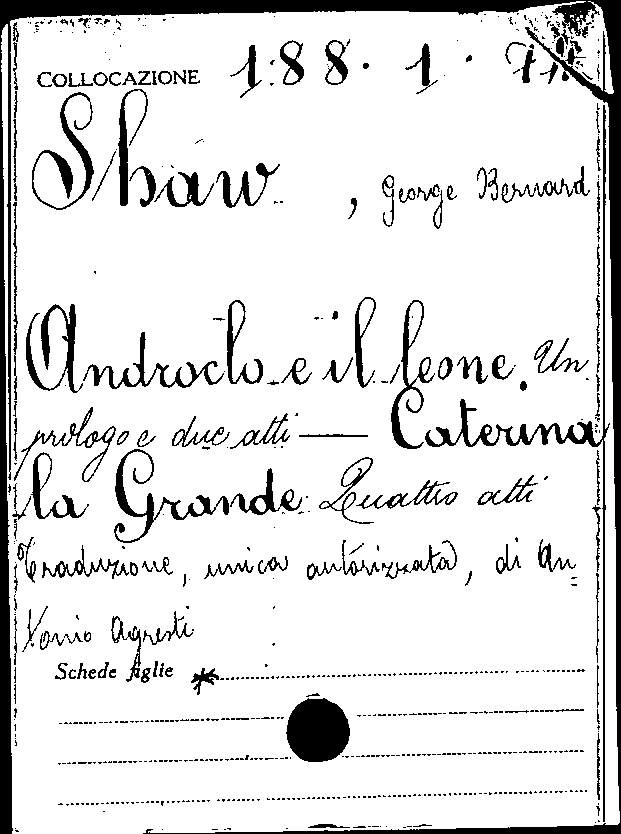 COLLOCAZIONE 188. 1.
Shaw, George Bernard
Androclo e il leone. Un
prologo e due atti — Caterina
la Grande Quattro atti
Traduzione, unica autorizzata, di An=
tonio Agresti
Schede figlie *